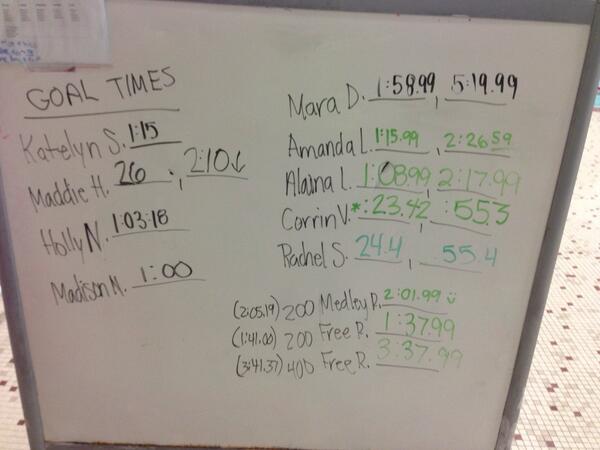 GOAL TIMES
Katelyn S. 1:15
Maddie H. 26, 2:10↓
Holly N. 1:03:18
Madison M. 1:00
Mara D. 1:58.99, 5:19.99
Amanda L. 1:15.99, 2:26.59
Alaina L. 1:08.99, 2:17.99
Corrin V. *:23.42, :553
Rachel S. 24.4, 55.4
(2:05.19) 200 Medley R. 2:01.99 :)
(1:41.00) 200 Free R. 1:37.99
(3:41.37) 400 Free R. 3:37.99